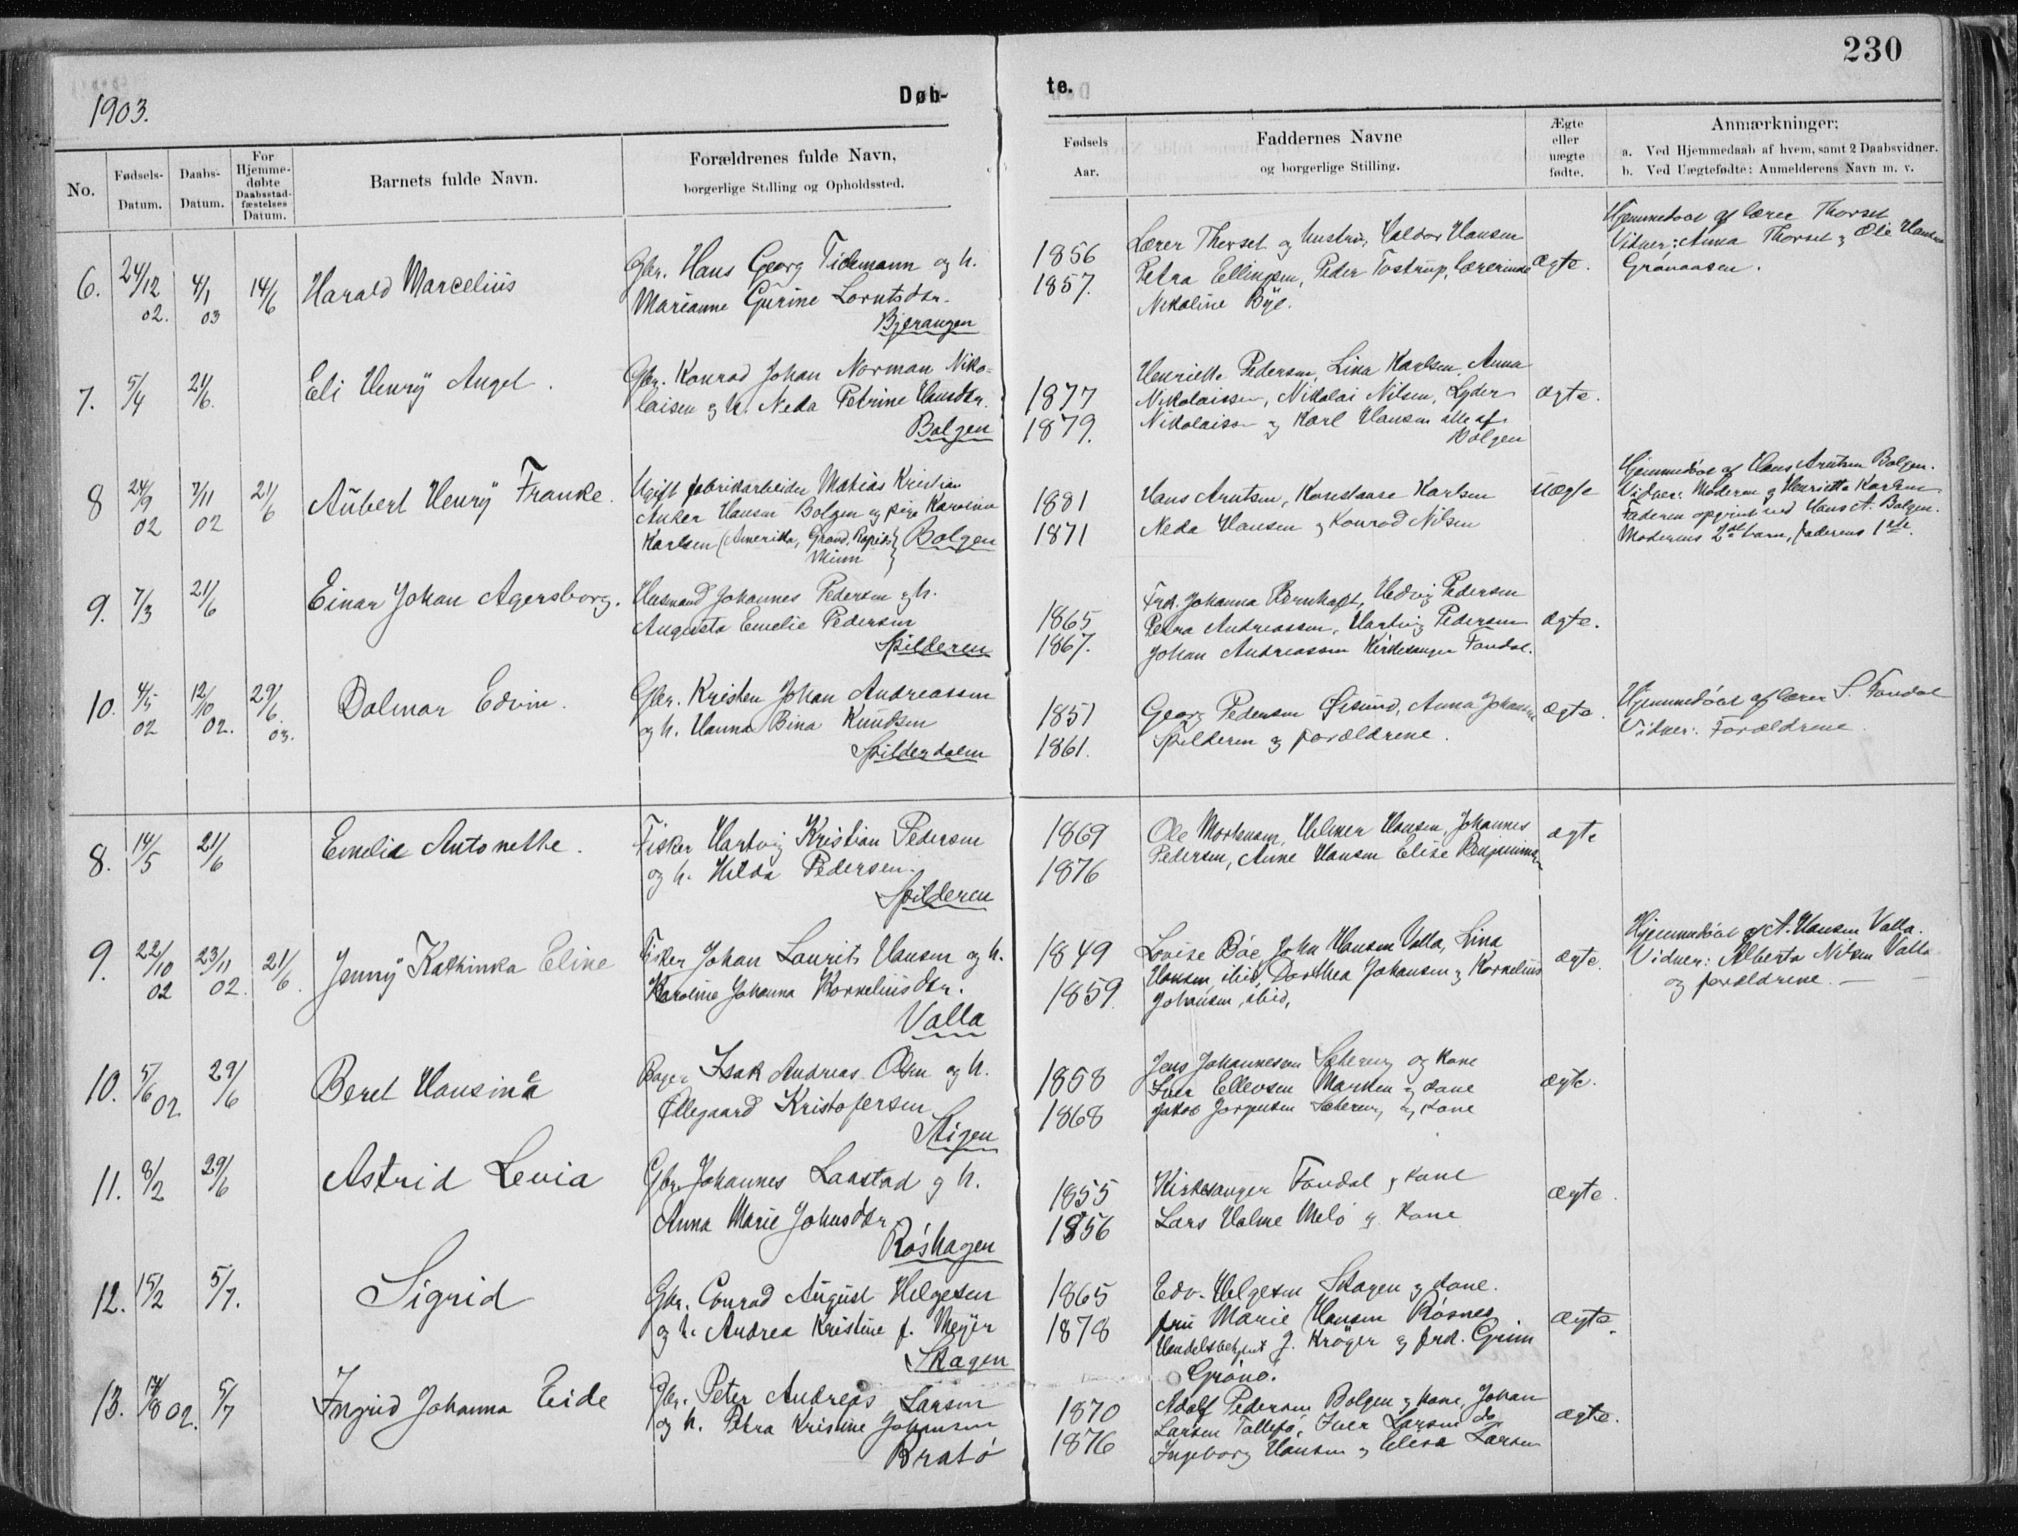 230
1903.
Døb-
te.
No.
Fødsels-
Datum.
Daabs-
Datum.
For
Hjemme-
døbte
Daabsstad-
fæstelses
Datum.
Barnets fulde Navn.
Forældrenes fulde Navn,
borgerlige Stilling og Opholdssted.
Fødsels
Aar.
Faddernes Navne
og borgerlige Stilling.
Ægte
eller
uægte
fødte.
Anmærkninger:
a. Ved Hjemmedaab af hvem, samt 2 Daabsvidner.
b. Ved Uægtefødte: Anmelderens Navn m. v.
6. 24/12 02. 4/1 03 14/6 Harald Marcelius
Gbr. Hans Georg Tidemann og h.
Marianne Gurine Lorntsdtr.
Bjerangen
1856
1857.
Lærer Thorset og hustru, Haldor Hansen
Petra Ellingsen, Peder Tostrup, lærerinde
Nikoline Bye.
ægte.
Hjemmedøbt af lærer Thorset
Vidner: Anna Thorset og Ole Hansen
Grønaasen.
7. 5/4 21/6. Eli Henrÿ Angel.
Gbr. Konrad Johan Norman Niko-
laisen og h. Neda Petrine Hansdtr.
Bolgen
1877
1879.
Henriette Pedersen, Lina Karlsen, Anna
Nikolaissen, Nikolai Nilsen, Lyder
Nikolaisen og Karl Hansen alle af
Bolgen
ægte.
8 24/9 02 7/11 02 21/6 Aubert Henrÿ Franke.
Ugift fabrikarbeider Matias Kristian
Anker Hansen Bolgen og pige Karoline
Karlsen (Amerika, Grand Rapids Minn) Bolgen
1881
1871
Hans Arntsen, Konstanse Karlsen
Neda Hansen og Konrad Nilsen
uægte
Hjemmedøbt af Hans Arntsen Bolgen.
Vidner: Moderen og Henriette Karlsen
Faderen opgivet ved Hans A. Bolgen.
Moderens 2det barn, faderens 1ste.
9. 7/3 21/6 Einar Johan Agersborg.
Husmand Johannes Pedersen og h.
Augusta Emelie Pedersen
Spilderen
1865
1867.
Frk. Johanna Bernhoft, Hedvig Pedersen
Petra Andreassen, Hartvig Pedersen
Johan Andreassen Kirkesanger Fondal.
ægte.
10. 4/5 02 12/10 02. 29/6. 03. Dalmar Edvin.
Gbr. Kristen Johan Andreassen
og h. Hanna Bina Knudsen
Spilderdalen
1851
1861.
Georg Pedersen Øisund, Anna Johansen
Spilderen og forældrene.
ægte.
Hjemmedøbt af lærer S. Fondal
Vidner: Forældrene
8. 14/5 21/6 Emelie Antonette.
Fisker Hartvig Kristian Pedersen
og h. Hilda Pedersen.
Spilderen
1869
1876
Ole Mortensen, Helmer Hansen, Johannes
Pedersen, Anne Hansen Elise Benjaminsen
ægte
9. 22/10 02 23/11 02. 21/6. Jennÿ Kathinka Eline
Fisker Johan Laurits Hansen og h.
Karoline Johanna Korneliusdtr.
Valla
1849
1859.
Lovise Bøe, John Hansen Valla, Lina
Hansen ibid, Dorthea Johansen og Kornelius
Johansen, ibid,
ægte.
Hjemmedøbt af A. Hansen Valla.
Vidner: Alberta Nilsen Valla
og forældrene. —
10. 5/6 02. 29/6 Beret Hansine
Bager Isak Andreas Olsen og h.
Ellegaard Kristofersen
Stigen
1858
1868
Jens Johannesen Sætering og kone
Iver Ellevsen Marken og kone
Jakob Jørgensen Sætering og kone
ægte.
11. 8/2 29/6 Astrid Levia
Gbr. Johannes Laastad og h.
Anna Marie Johnsdtr.
Røshagen
1855
1856
Kirkesanger Fondal og kone
Lars Halme Melø og kone
ægte.
12. 15/2 5/7. Sigrid
Gbr. Conrad August Helgesen
og h. Andrea Kristine f. Meÿer
Skagen
1865
1878
Edv. Helgesen Skagen og kone.
fru Marie Hansen Røsnes
Handelsbetjent J. Krøger og frk. Grim
Grønø.
ægte.
13. 17/8 02. 5/7 Ingrid Johanna Eide
Gbr. Peter Andreas Larsen
og h. Petra Kristine Johansen
Bratø
1870
1876
Adolf Pedersen Bolgen og kone, Johan
Larsen Tallefø, Iver Larsen do
Ingeborg Hansen og Elise Larsen
ægte.